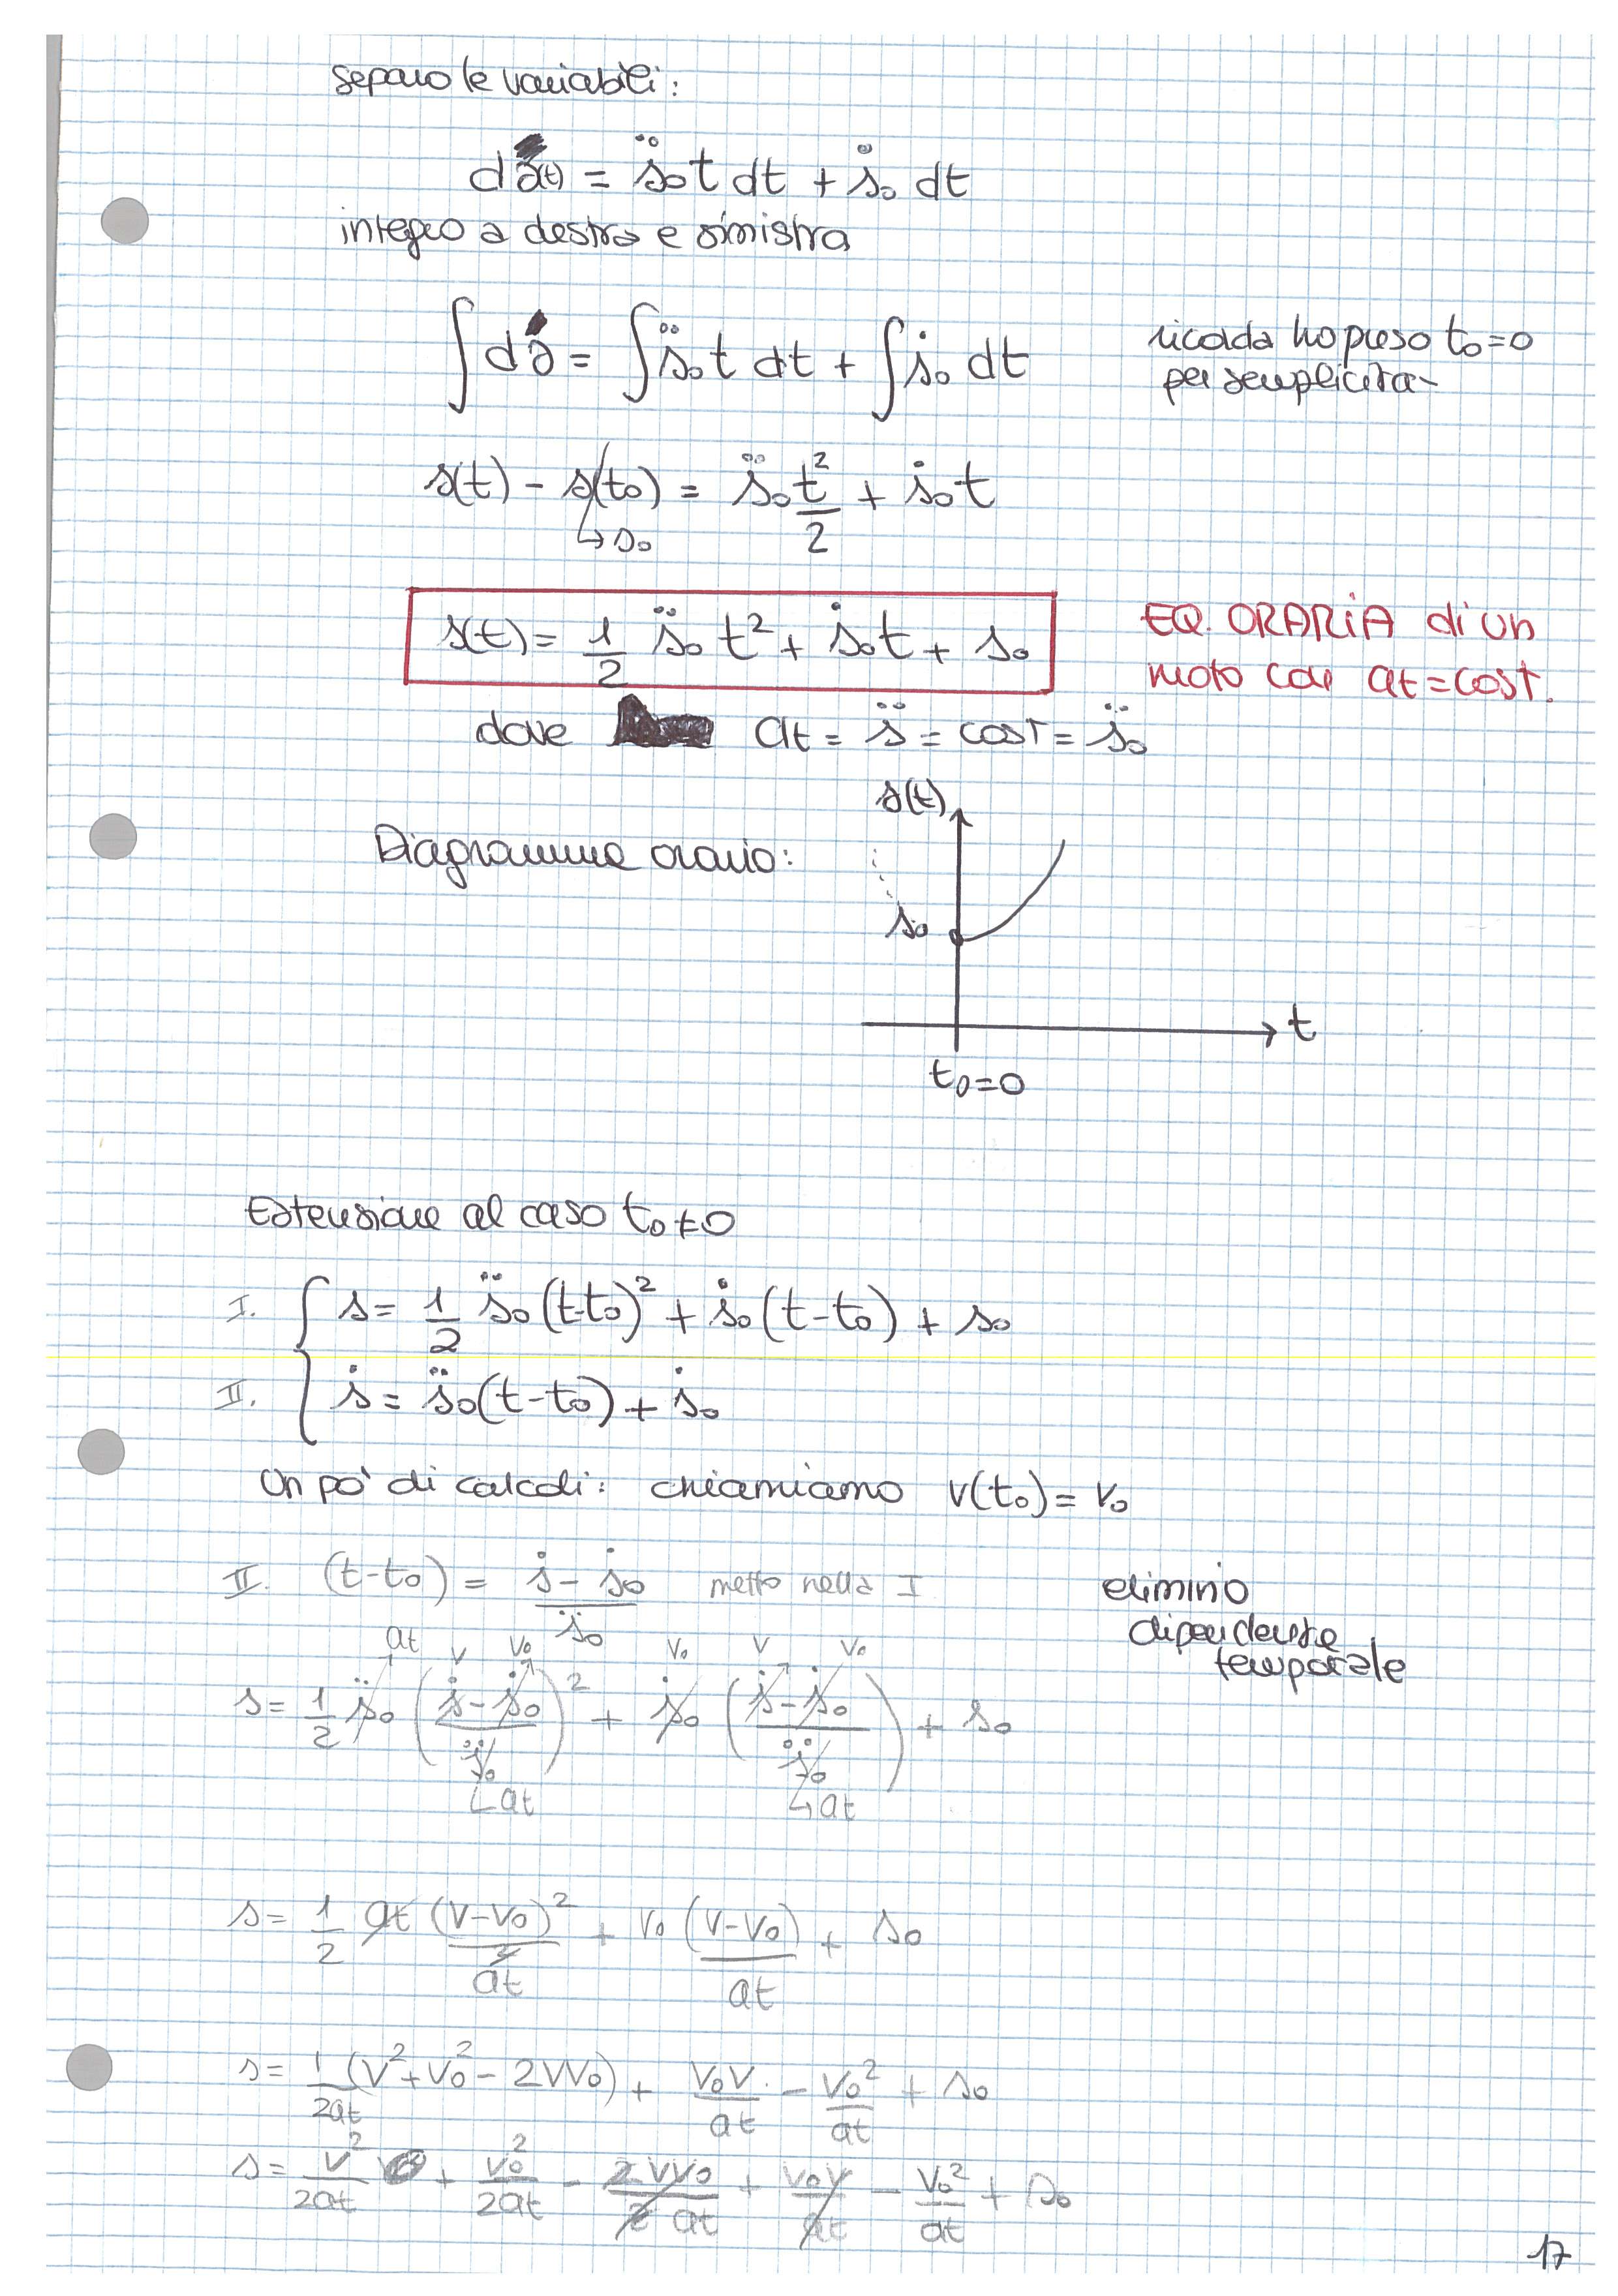 separo le variabili:
ds(t) = s̈₀ t dt + ṡ₀ dt
integro a destra e sinistra
∫ ds = ∫ s̈₀ t dt + ∫ ṡ₀ dt
ricorda ho preso t₀=0
per semplicità
s(t) - s(t₀) = s̈₀ t²/2 + ṡ₀ t
↳ s₀
s(t) = 1/2 s̈₀ t² + ṡ₀ t + s₀
EQ. ORARIA di un
moto con at = cost.
dove at = s̈ = cost = s̈₀
s(t)
Diagramma orario:
s₀
t
t₀=0
Estensione al caso t₀≠0
I. s = 1/2 s̈₀ (t-t₀)² + ṡ₀ (t-t₀) + s₀
II. ṡ = s̈₀ (t-t₀) + ṡ₀
Un po' di calcoli: chiamiamo v(t₀) = v₀
II. (t-t₀) = (ṡ - ṡ₀)/s̈₀ metto nella I
elimino
dipendenza
temporale
at v v₀ v₀ v v₀
s = 1/2 s̈₀ ((ṡ - ṡ₀)/s̈₀)² + ṡ₀ ((ṡ - ṡ₀)/s̈₀) + s₀
↳ at ↳ at
s = 1/2 at (v-v₀)²/at² + v₀ (v-v₀)/at + s₀
s = 1/2at (v² + v₀² - 2vv₀) + v₀v/at - v₀²/at + s₀
s = v²/2at + v₀²/2at - 2vv₀/2at + v₀v/at - v₀²/at + s₀
17